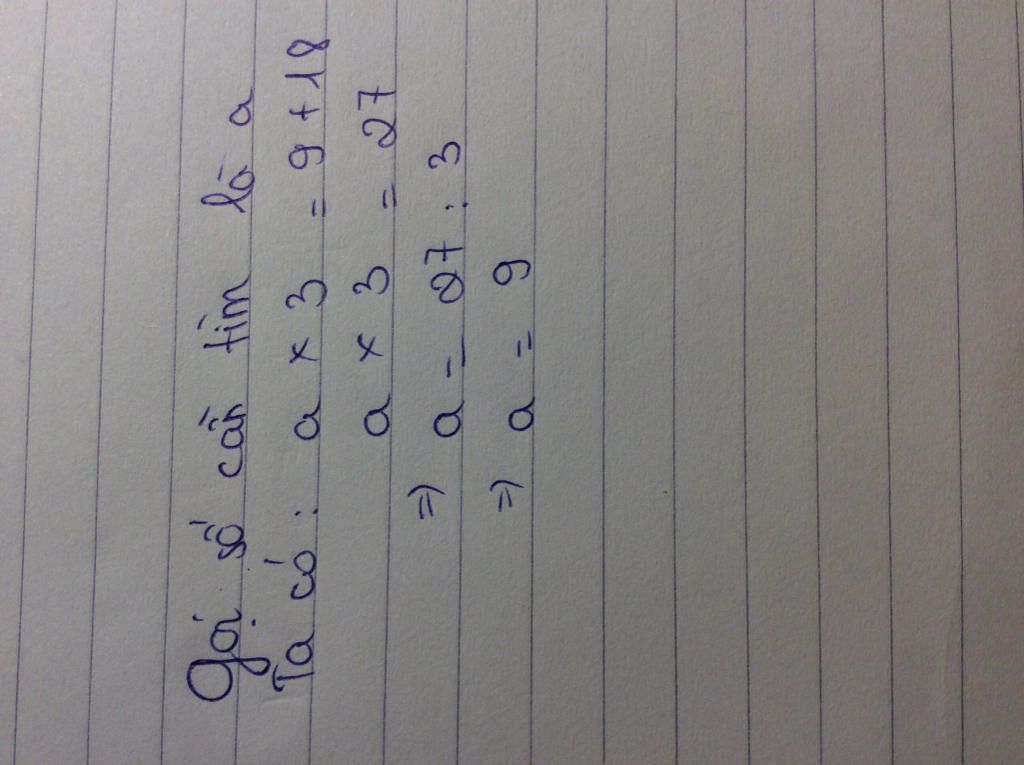 Gọi số cần tìm là a
Ta có : a x 3 = 9 + 18
a x 3 = 27
=> a = 27 : 3
=> a = 9